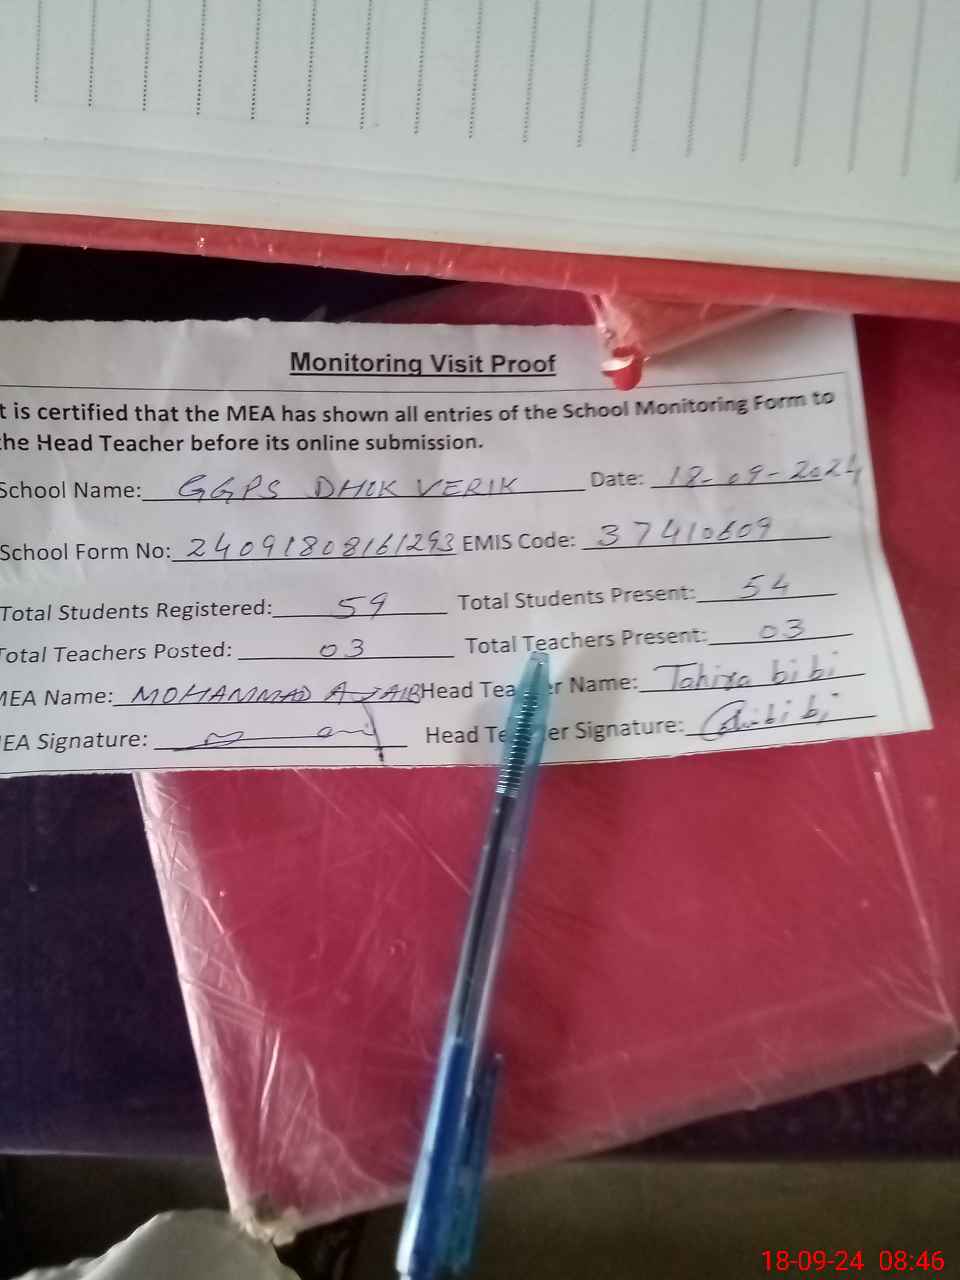 Monitoring Visit Proof
t is certified that the MEA has shown all entries of the School Monitoring Form to
the Head Teacher before its online submission.
School Name: GGPS DHOK VERIK Date: 18-09-2024
School Form No: 24091808161293 EMIS Code: 37410609
Total Students Registered: 59 Total Students Present: 54
Total Teachers Posted: 03 Total Teachers Present: 03
MEA Name: MOHAMMAD Head Tea er Name: Tahira bibi
EA Signature: Head Te er Signature:
18-09-24 08:46